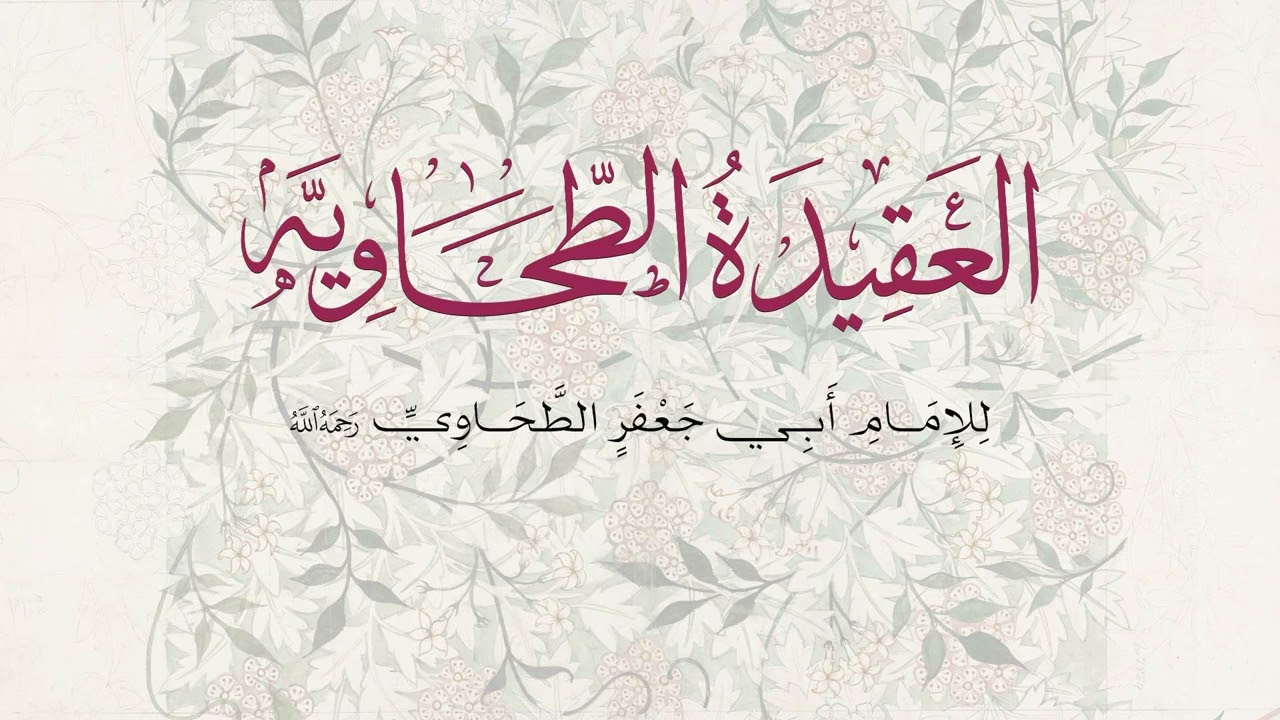 العَقِيدَةُ الطَّحَاوِيَّه
لِلإِمَامِ أَبِي جَعْفَرٍ الطَّحَاوِيِّ رَحِمَهُ ٱللَّهُ